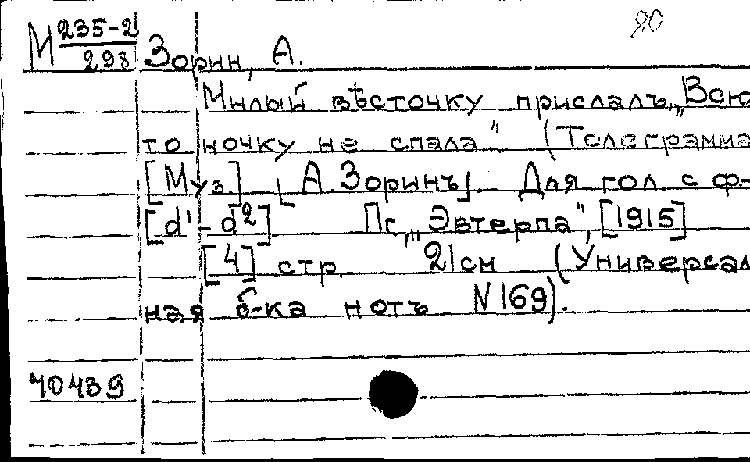 20
М 235-2
298 Зорин, А.
Милый вѣсточку прислалъ „Всю
то ночку не спала" (Телеграмма
[Муз.] [А. Зоринъ]. Для гол. с ф-
[d¹-d²] Пг., „Эвтерпа", [1915]
[4] стр. 21 см (Универсал
ная б-ка нотъ N 169).
40439